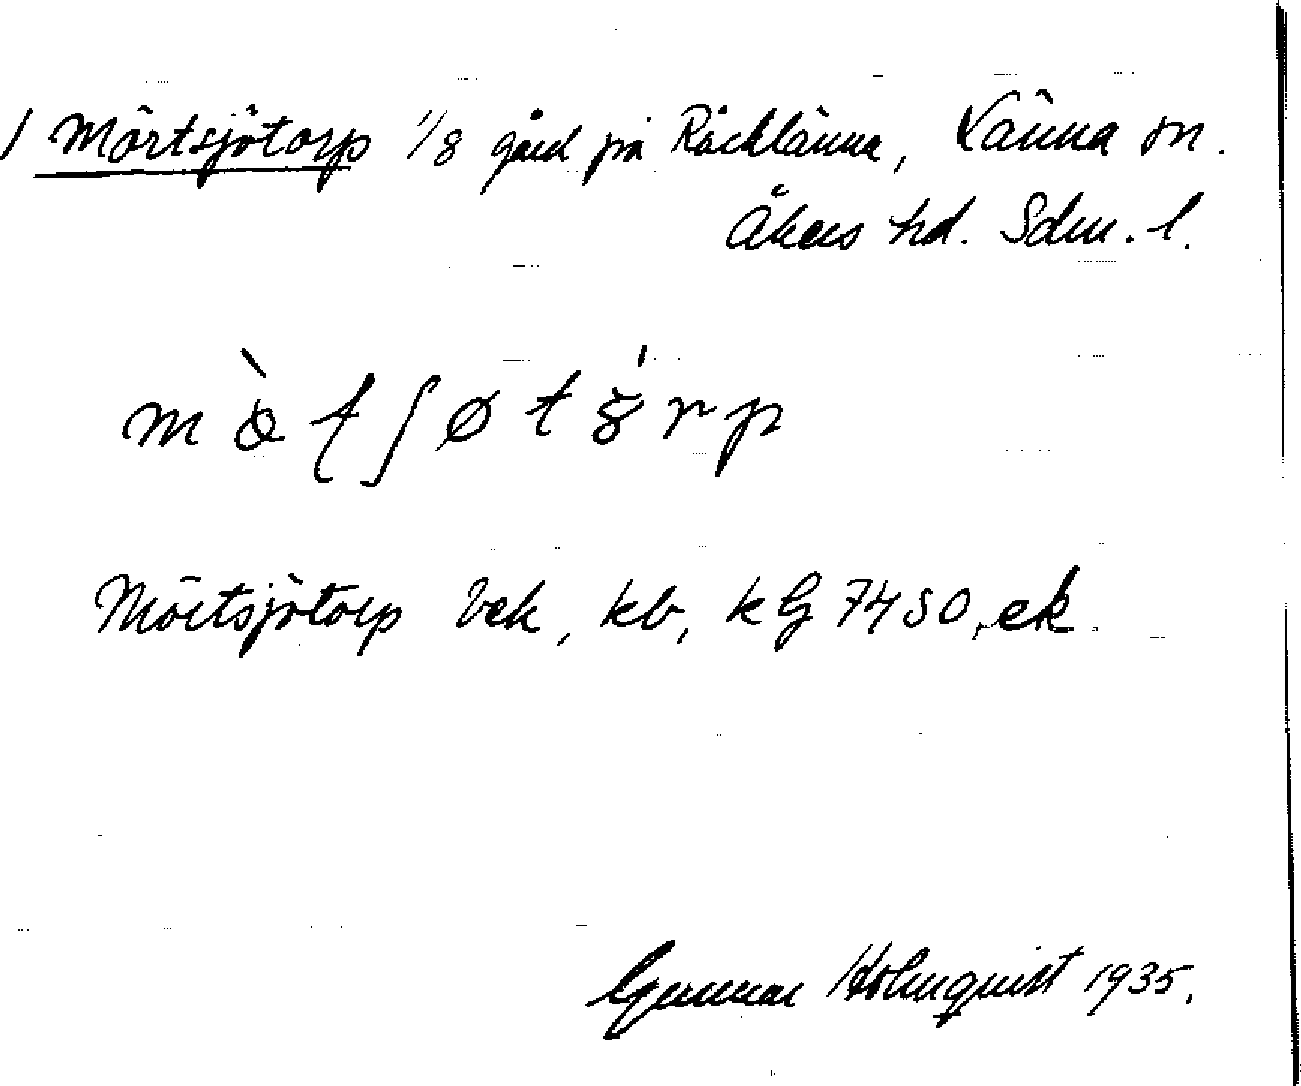 / Mörtsjötorp 1/8 gård på Räcklänna, Länna sn.
Åkers hd. Sdm. l.
m̀ƭʃøtrp
Mörtsjötorp bek, kb, kG 7450, ek.
Gunnar Holmquist 1935.